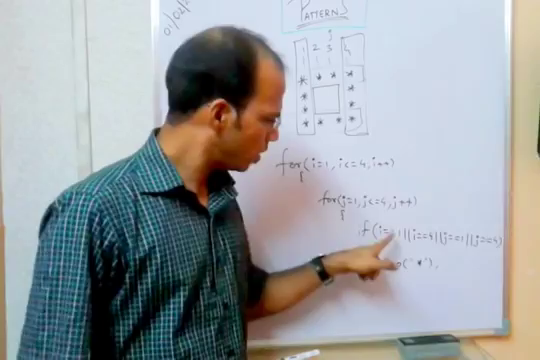 01/02/
PATTERNS
j
1 2 3 4
1 1 1
* * * *
*
*
* * * *
for(i=1, i<=4, i++)
{
for(j=1, j<=4, j++)
{
if(i==1||i==4||j==1||j==4)
("*"),